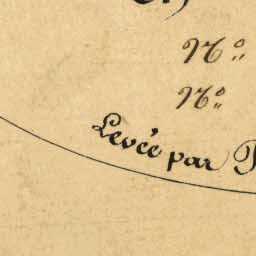 N°.
N°.
Levée par